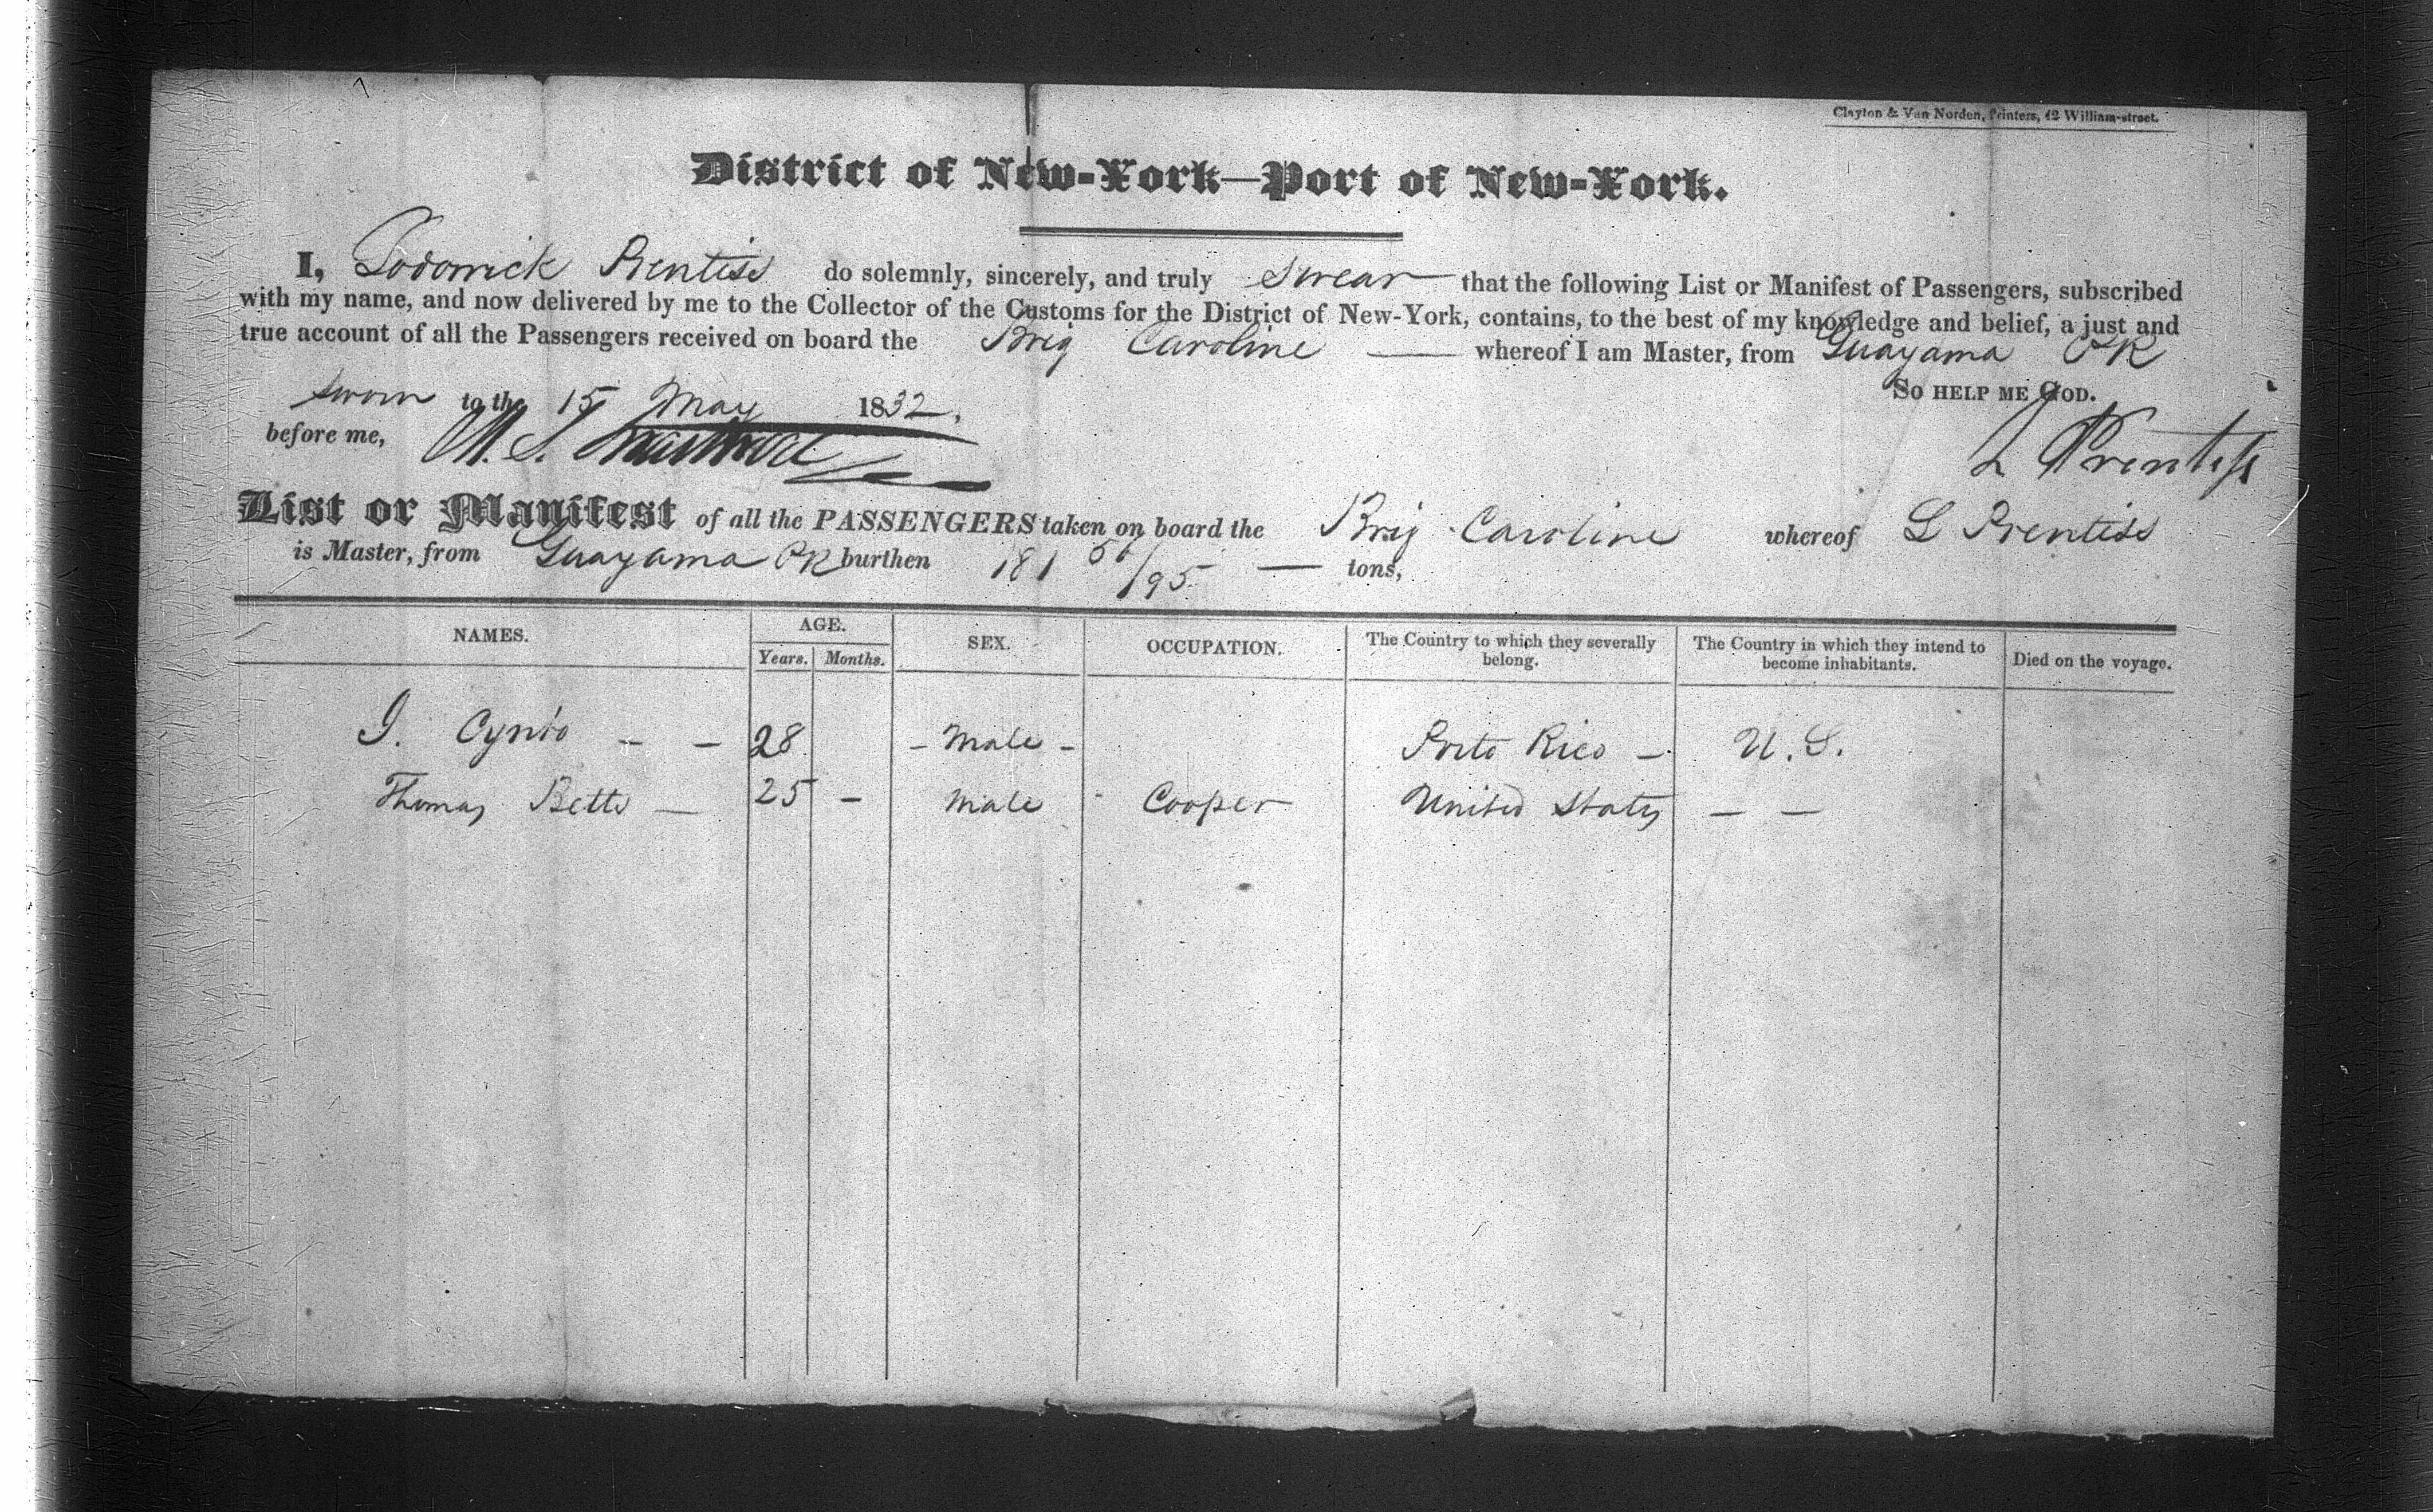 Clayton & Van Norden, Printers, 42 William-street.
District of New-York—Port of New-York.
I, Lodowick Prentiss do solemnly, sincerely, and truly swear that the following List or Manifest of Passengers, subscribed
with my name, and now delivered by me to the Collector of the Customs for the District of New-York, contains, to the best of my knowledge and belief, a just and
true account of all the Passengers received on board the Brig Caroline — whereof I am Master, from Guayama PR
So HELP ME GOD.
sworn to the 15 May 1832.
before me,
L Prentiss
List or Manifest of all the PASSENGERS taken on board the Brig Caroline whereof L Prentiss
is Master, from Guayama PR burthen 181 /95 — tons,
NAMES. AGE. SEX. OCCUPATION. The Country to which they severally belong. The Country in which they intend to become inhabitants. Died on the voyage.
Years. Months.
J. — — 28 – Male – Porto Rico — U.S.
Thomas Betts — 25 — Male - Cooper United States — —